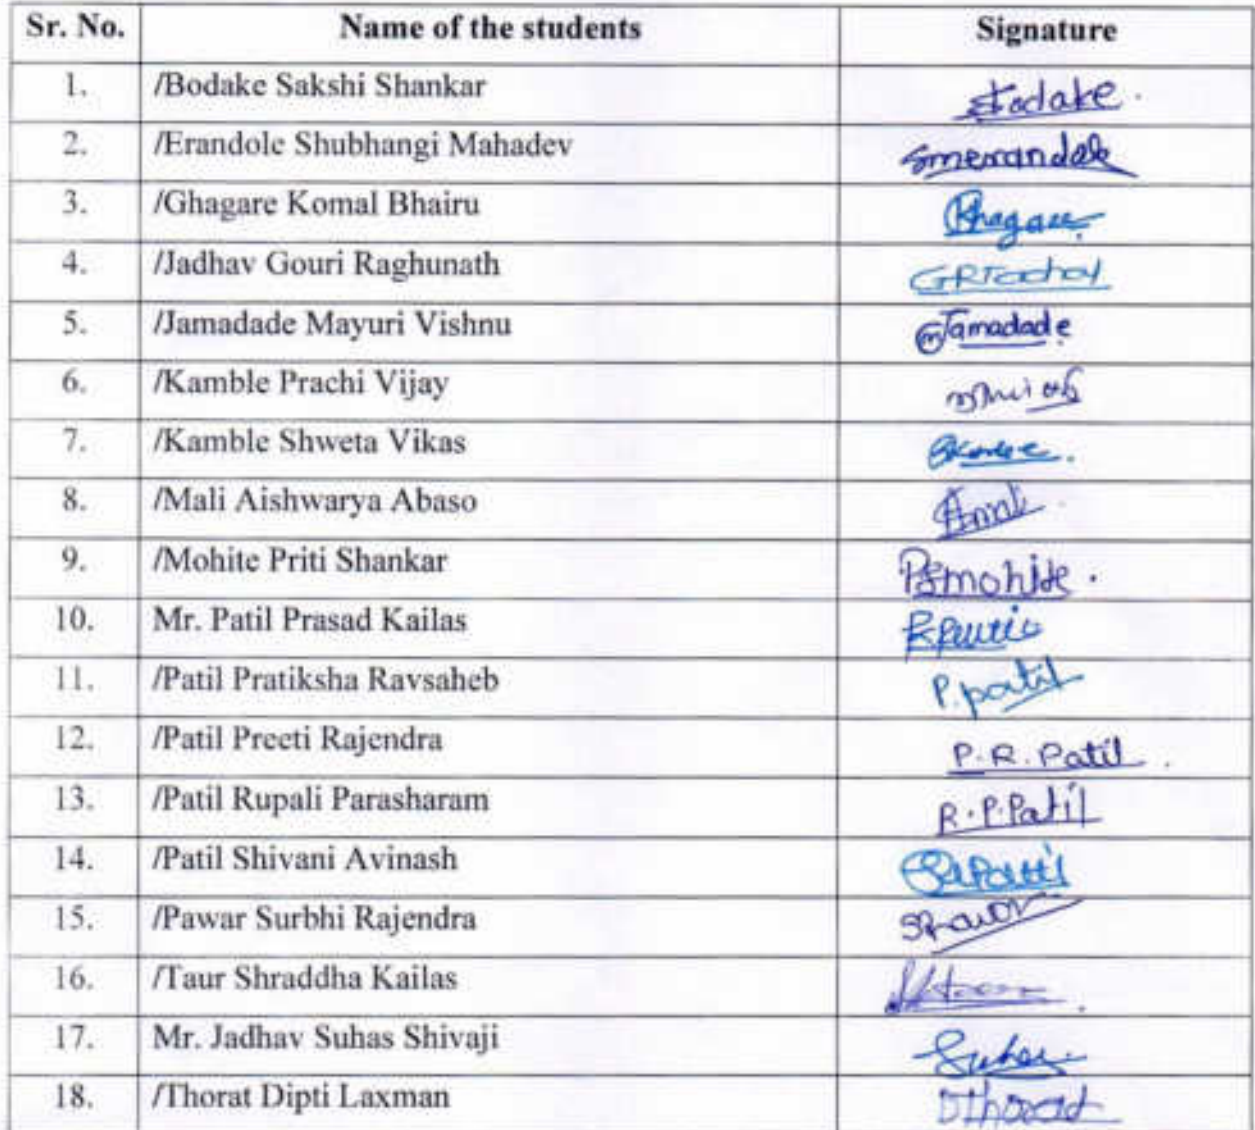 Sr. No. Name of the students Signature
1. /Bodake Sakshi Shankar
2. /Erandole Shubhangi Mahadev smerandole
3. /Ghagare Komal Bhairu
4. /Jadhav Gouri Raghunath GRJadhav
5. /Jamadade Mayuri Vishnu Jamadade
6. /Kamble Prachi Vijay
7. /Kamble Shweta Vikas
8. /Mali Aishwarya Abaso
9. /Mohite Priti Shankar PSmohite.
10. Mr. Patil Prasad Kailas
11. /Patil Pratiksha Ravsaheb P.patil
12. /Patil Preeti Rajendra P.R.Patil.
13. /Patil Rupali Parasharam R.P.Patil
14. /Patil Shivani Avinash SAPatil
15. /Pawar Surbhi Rajendra SPawar
16. /Taur Shraddha Kailas
17. Mr. Jadhav Suhas Shivaji Suhas.
18. /Thorat Dipti Laxman DThorat